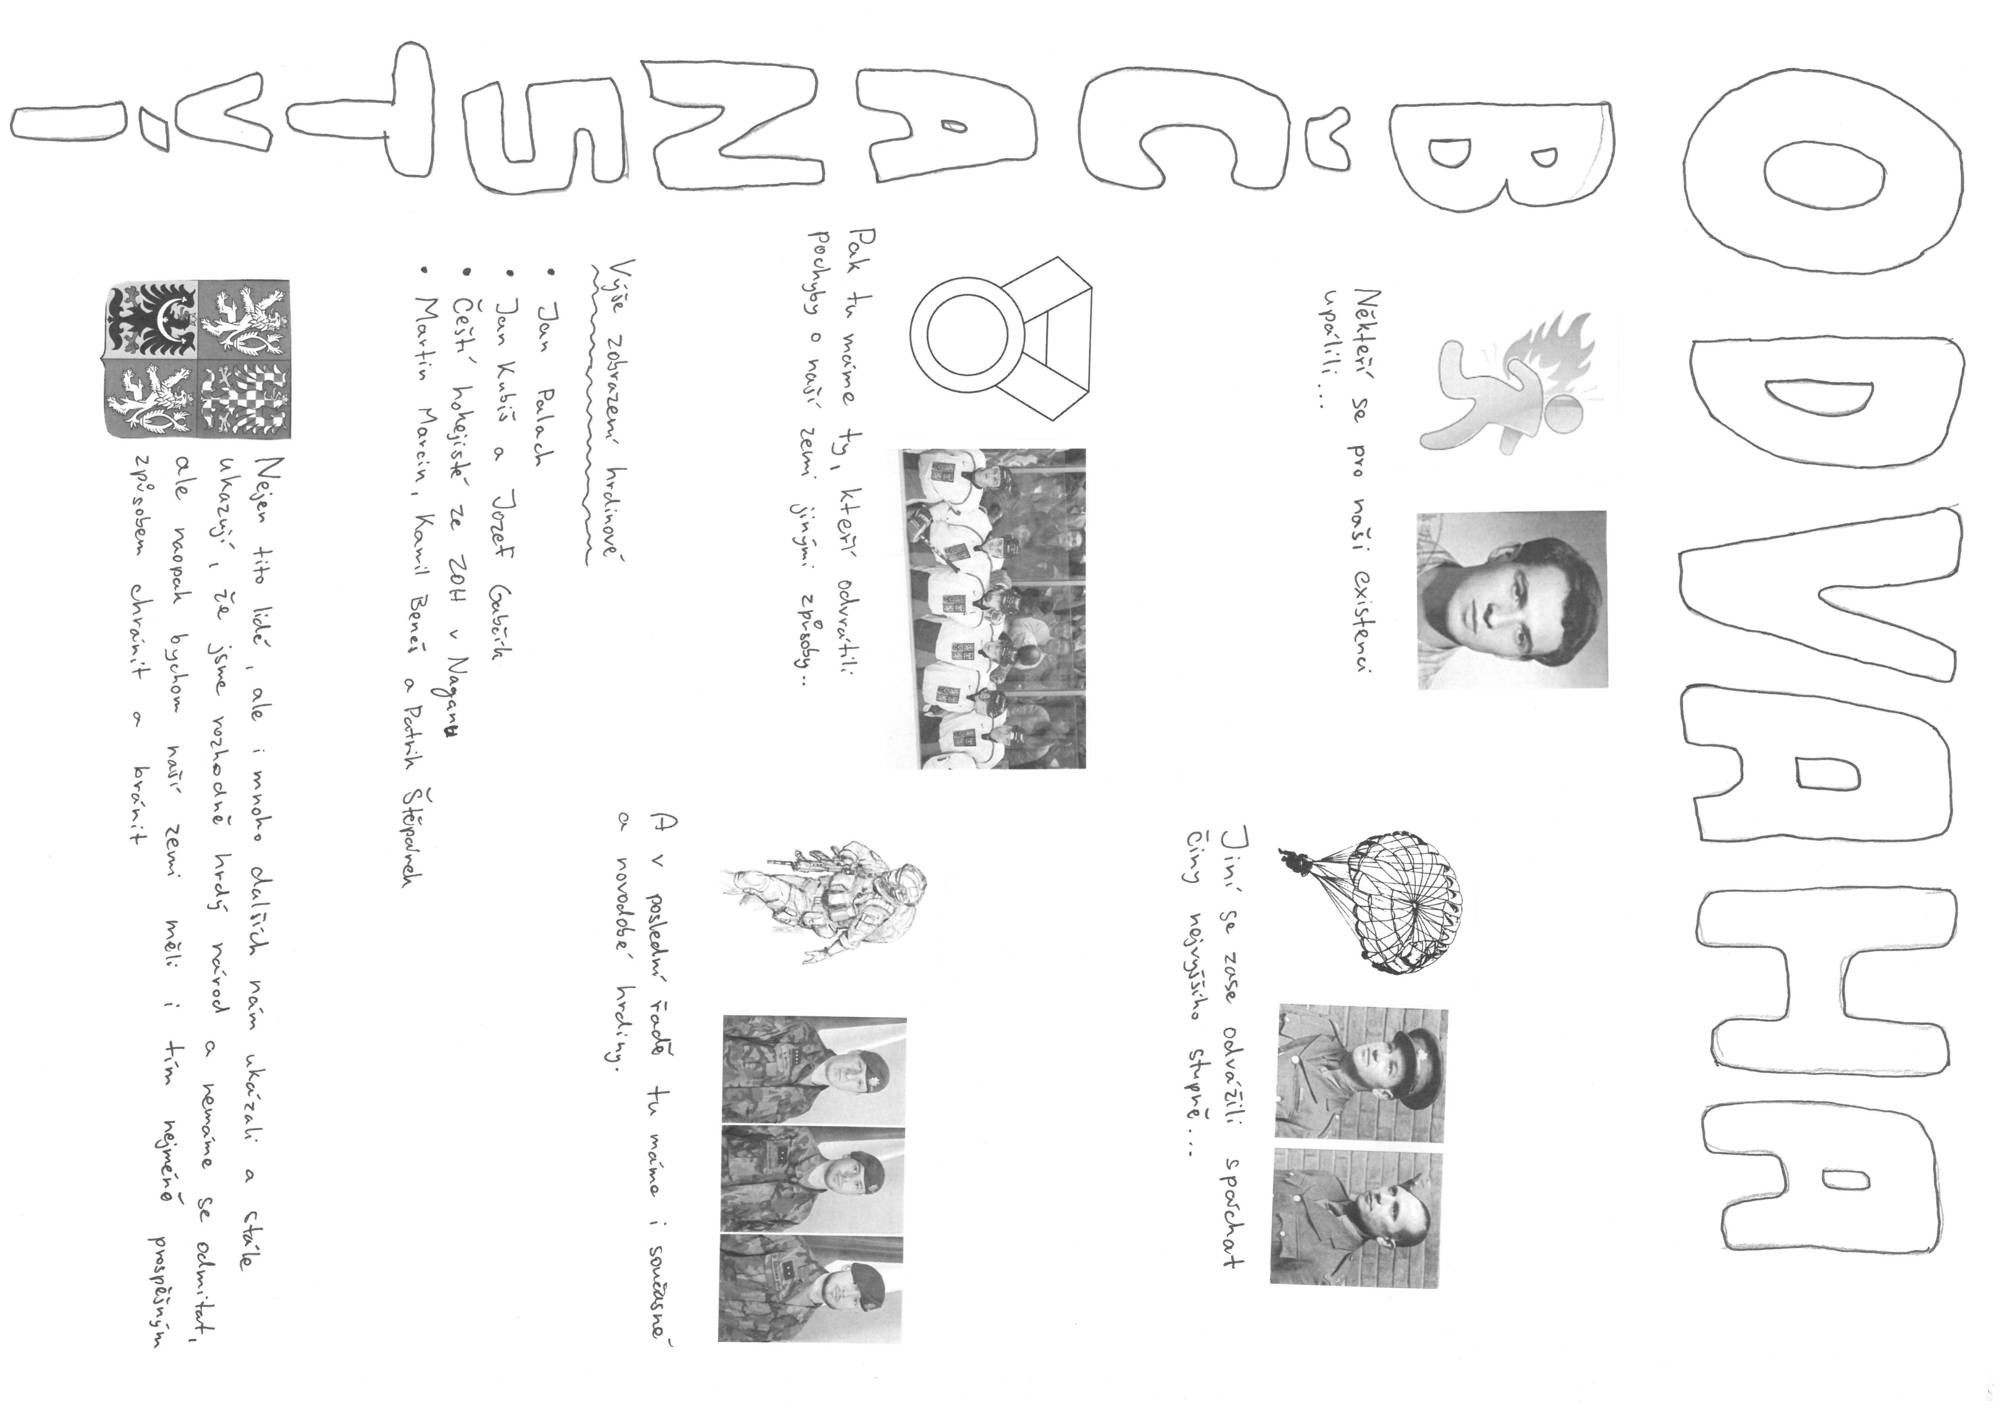 ODVAHA
OBČANSTVÍ
Někteří se pro naši existenci
upálili...
Jiní se zase odvážili spáchat
činy nejvyššího stupně...
Pak tu máme ty, kteří odvrátili
pochyby o naší zemi jinými způsoby..
A v poslední řadě tu máme i současné
a novodobé hrdiny.
Výše zobrazení hrdinové
• Jan Palach
• Jan Kubiš a Jozef Gabčík
• Čeští hokejisté ze ZOH v Naganu
• Martin Marcin, Kamil Beneš a Patrik Štěpánek
Nejen tito lidé, ale i mnoho dalších nám ukázali a stále
ukazují, že jsme rozhodně hrdý národ a nemáme se odmítat,
ale naopak bychom naší zemi měli i tím nejméně prospěšným
způsobem chránit a bránit